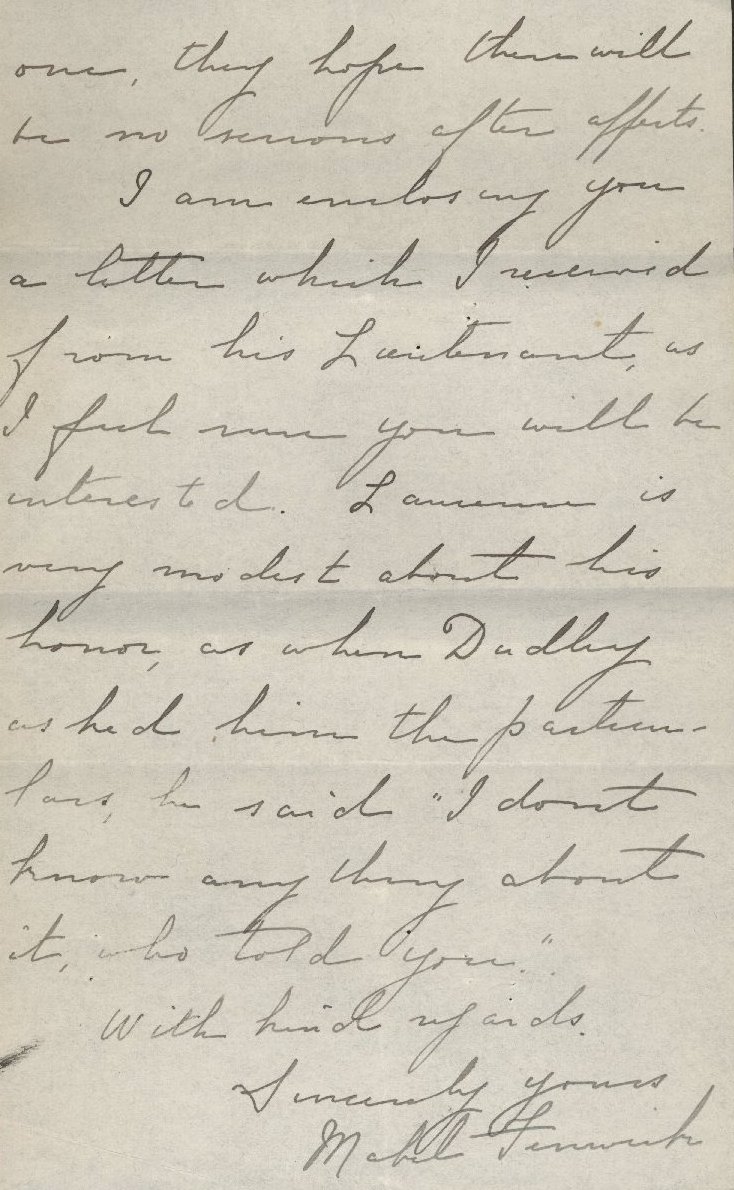 one, they hope there will
be no serious after affects.
I am enclosing you
a letter which I received
from his Lieutenant, as
I feel sure you will be
interested. Laurence is
very modest about his
honor, as when Dudley
asked him the particu-
lars, he said "I dont
know anything about
it, who told you."
With kind regards.
Sincerely yours
Mabel Fenwick